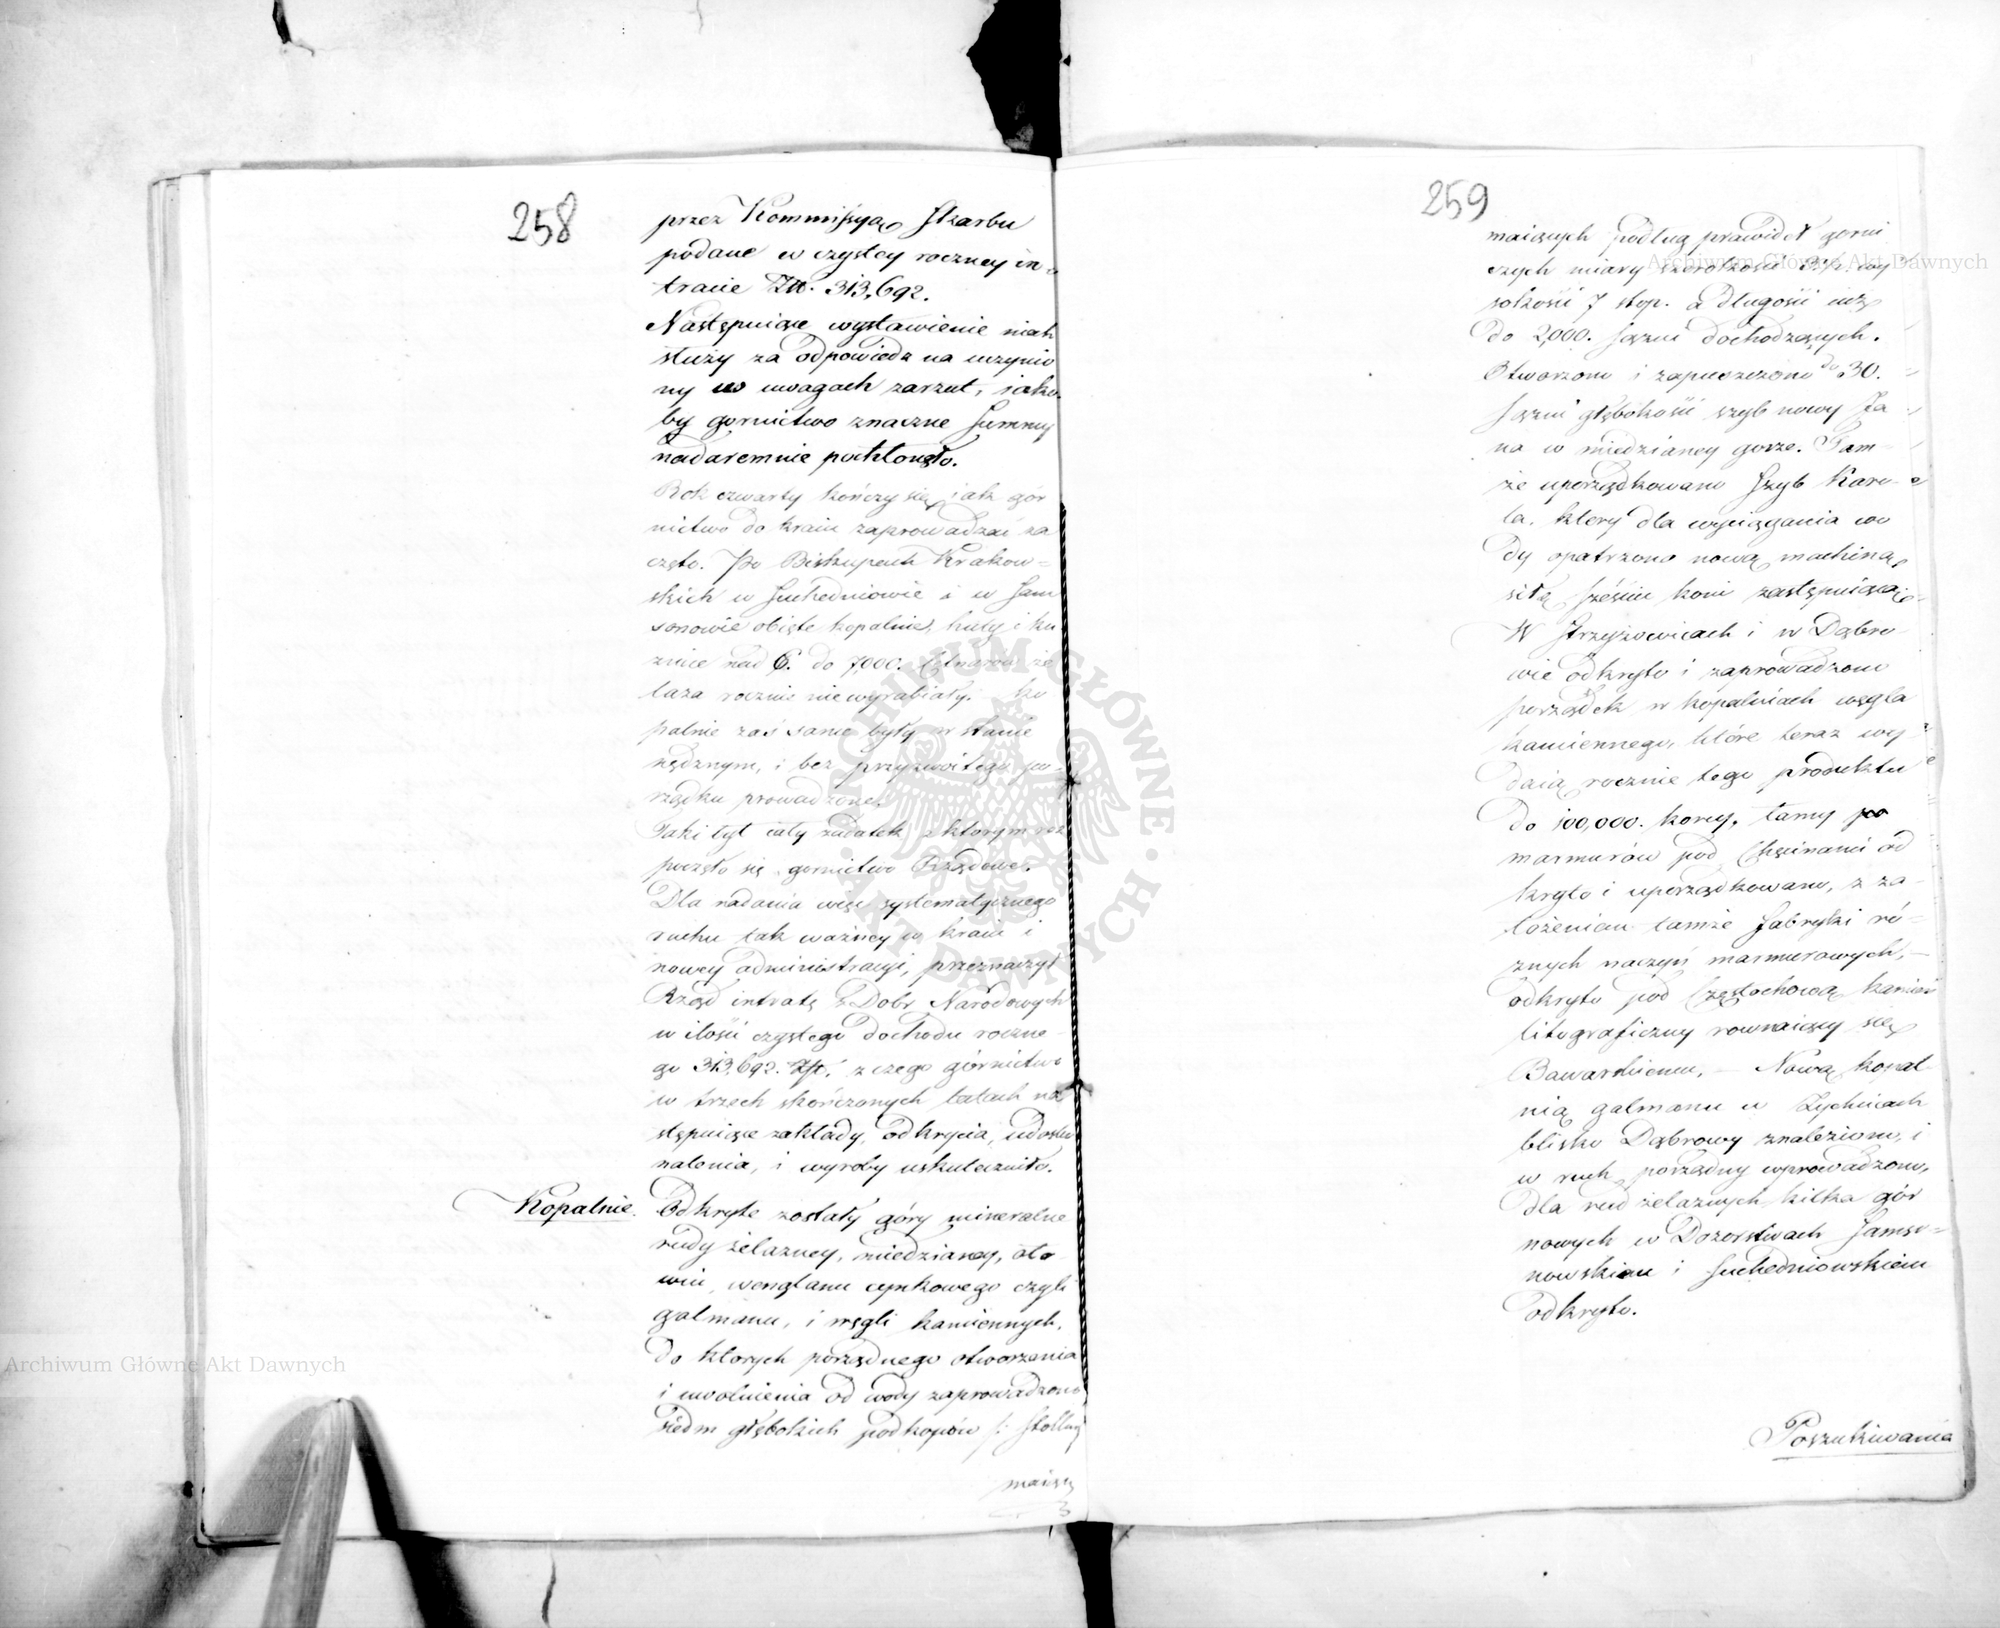 258
przez Kommissyą Skarbu
podane w czystey roczney in=
tracie Zł. 313,692.
Następuiące wystawienie niech
służy za odpowiedz na uczynio
ny w uwagach zarzut, iako
by gornictwo znaczne Summy
nadaremnie pochłonęło.
Rok czwarty kończy się iak gór
nictwo do kraiu zaprowadzać za
częto. Po Biskupach Krakow=
skich w Suchedniowie i w Sam
sonowie obięte kopalnie, huty i ku
znice nad 6. do 7,000. Cetnarów że
laza rocznie niewyrabiały. Ko
palnie zaś same były w stanie
nędznym, i bez przyzwoitego po=
rządku prowadzone.
Taki był cały zadatek z ktorym roz
poczęło się gornictwo Rządowe.
Dla nadania więc systematycznego
ruchu tak ważney w kraiu i
nowey administracyi, przeznaczył
Rząd intratę z Dobr Narodowych
w ilości czystego dochodu roczne
go 313,692. Złp. z czego górnictwo
w trzech skończonych latach na
stępuiące zakłady, odkrycia, udosko
nalenia, i wyroby uskuteczniło.
Kopalnie. Odkryte zostały góry mineralne
rudy żelazney, miedzianey, oło
wiu, wenglanu cynkowego czyli
galmanu, i węgli kamiennych,
do ktorych porządnego otworzenia
i uwolnienia od wody zaprowadzono
siedm głębokich podkopów /: Stollny
maiący
3
259
maiących podług prawideł gorni
czych miary szerokości 3½. wy
sokości 7 stop. a długości iuż
do 2,000. sązni dochodzących.
Otworzono i zapuszczono do 30.
sązni głębokości szyb nowy Ja
na w miedzianey gorze. Tam-
że uporządkowano Szyb Karo-
la, ktory dla wyciągania wo
dy opatrzono nową machiną,
siłę sześciu koni zastępuiącą.
W Strzyżowicach i w Dąbro-
wie odkryto i zaprowadzono
porządek w kopalniach węgla
kamiennego, które teraz wy
daią rocznie tego produktu
do 100,000. korcy, łamy
marmurów pod Chęcinami od
kryto i uporządkowano, z za-
łożeniem tamże fabryki ró=
znych naczyń marmurowych,-
odkryto pod Częstochową kamień
litograficzny rownaiący się
Bawarskiemu, - Nową kopal-
nią galmanu w Zychcicach
blisko Dąbrowy znaleziono, i
w ruch porządny wprowadzono,
dla rud żelaznych kilka gór
nowych w Dozorstwach Samso-
nowskiem i Suchedniowskiem
odkryto.
Poszukiwania
Archiwum Główne Akt Dawnych
Archiwum Główne Akt Dawnych
ARCHIWUM GŁÓWNE AKT DAWNYCH